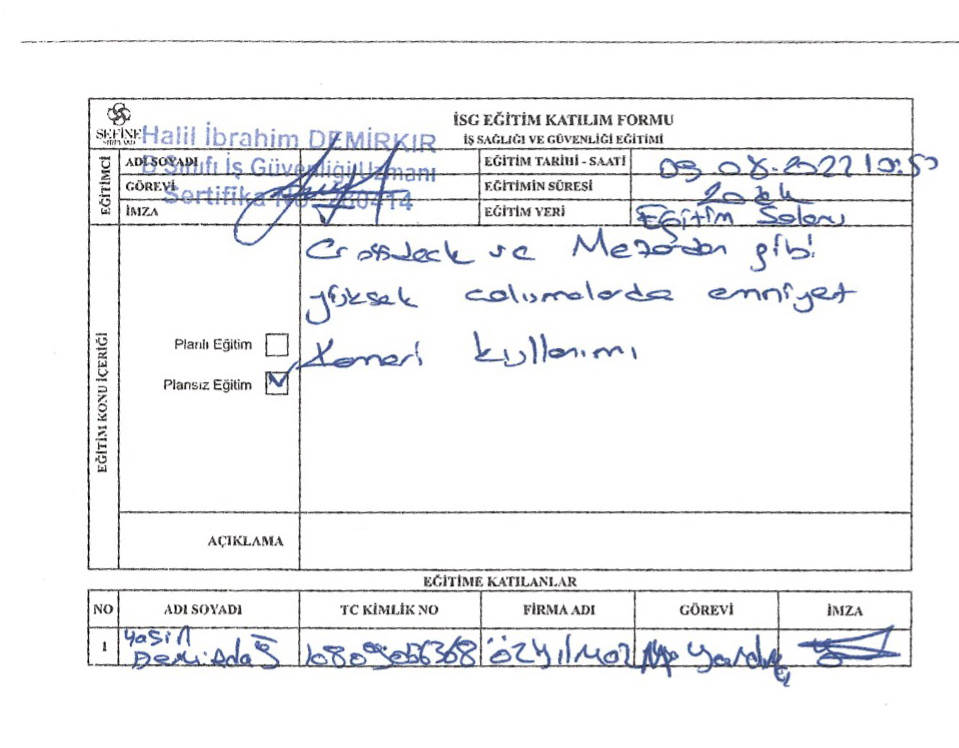 SEFİNE
SHIPYARD
İSG EĞİTİM KATILIM FORMU
İŞ SAĞLIĞI VE GÜVENLİĞİ EĞİTİMİ
Halil İbrahim DEMİRKIR
B Sınıfı İş Güvenliği Uzmanı
Sertifika No:
EĞİTİMCİ
ADI SOYADI
GÖREVİ
İMZA
EĞİTİM TARİHİ - SAATİ 09.08.2022
EĞİTİMİN SÜRESİ 20 dk
EĞİTİM YERİ Eğitim Salonu
EĞİTİM KONU İÇERİĞİ
Planlı Eğitim
Plansız Eğitim
Crossdeck ve gibi
yüksek calısmalarda emniyet
Kemeri kullanımı
AÇIKLAMA
EĞİTİME KATILANLAR
NO ADI SOYADI TC KİMLİK NO FİRMA ADI GÖREVİ İMZA
1 Yasin
özyılmaz